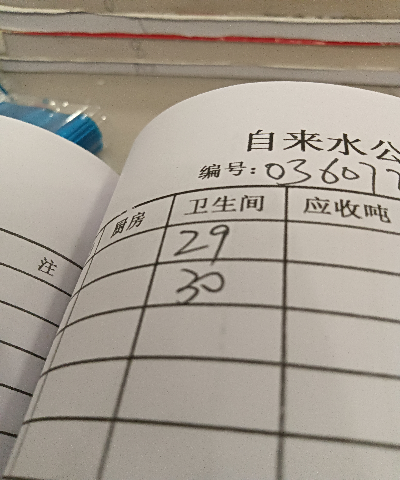 自来水公
编号:036077
注
厨房 卫生间 应收吨
29
30